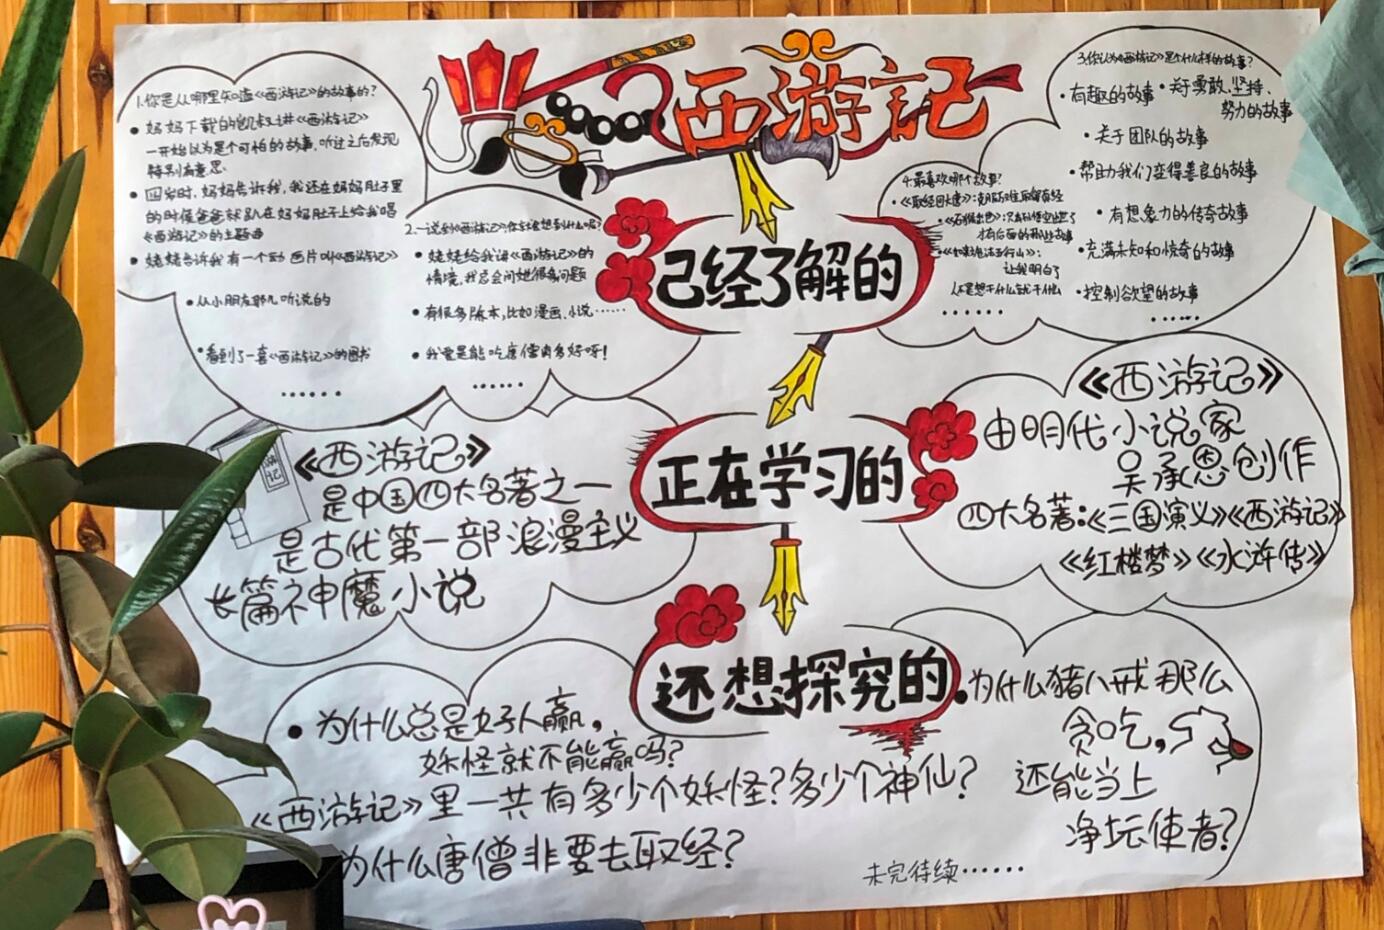 西游記
1.你是从哪里知道《西游记》的故事的?
妈妈下载的凯叔讲《西游记》
一开始以为是个可怕的故事,听过之后发现
特别有意思.
四岁时,妈妈告诉我,我还在妈妈肚子里
的时候爸爸就趴在妈妈肚子上给我唱
《西游记》的主题曲
姥姥告诉我有一个动画片叫《西游记》
从小朋友那儿听说的
看到了一套《西游记》的图书
……
2.一说到《西游记》,你会想到什么呢?
姥姥给我讲《西游记》的
情境,我总会问她很多问题
有很多版本,比如漫画、小说……
我要是能吃唐僧肉多好呀!
……
已经了解的
4.最喜欢哪个故事?
才有后面的
让我明白了
不是想干什么就干什么
……
3.你认为《西游记》是个什么样的故事?
有趣的故事
关于勇敢、坚持、
努力的故事
关于团队的故事
帮助我们变得善良的故事
有想象力的传奇故事
充满未知和惊奇的故事
控制欲望的故事
……
正在学习的
《西游记》
是中国四大名著之一
是古代第一部浪漫主义
长篇神魔小说
《西游记》
由明代小说家
吴承恩创作
四大名著:《三国演义》《西游记》
《红楼梦》《水浒传》
还想探究的
为什么总是好人赢,
妖怪就不能赢吗?
《西游记》里一共有多少个妖怪?多少个神仙?
为什么唐僧非要去取经?
为什么猪八戒那么
贪吃,
还能当上
净坛使者?
未完待续……